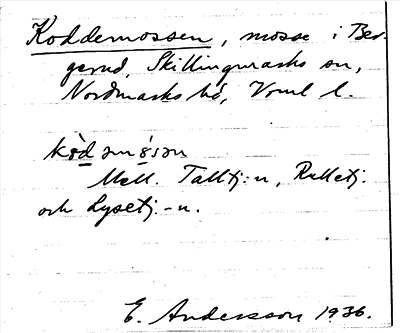 Koddemossen, mosse i Ber-
gerud, Skillingmarks sn,
Nordmarks hd, Vrml l.
kòd əmósən
Mell. Talltj:n, Rulletj.
och Lysetj.-n.
E. Andersson 1936.